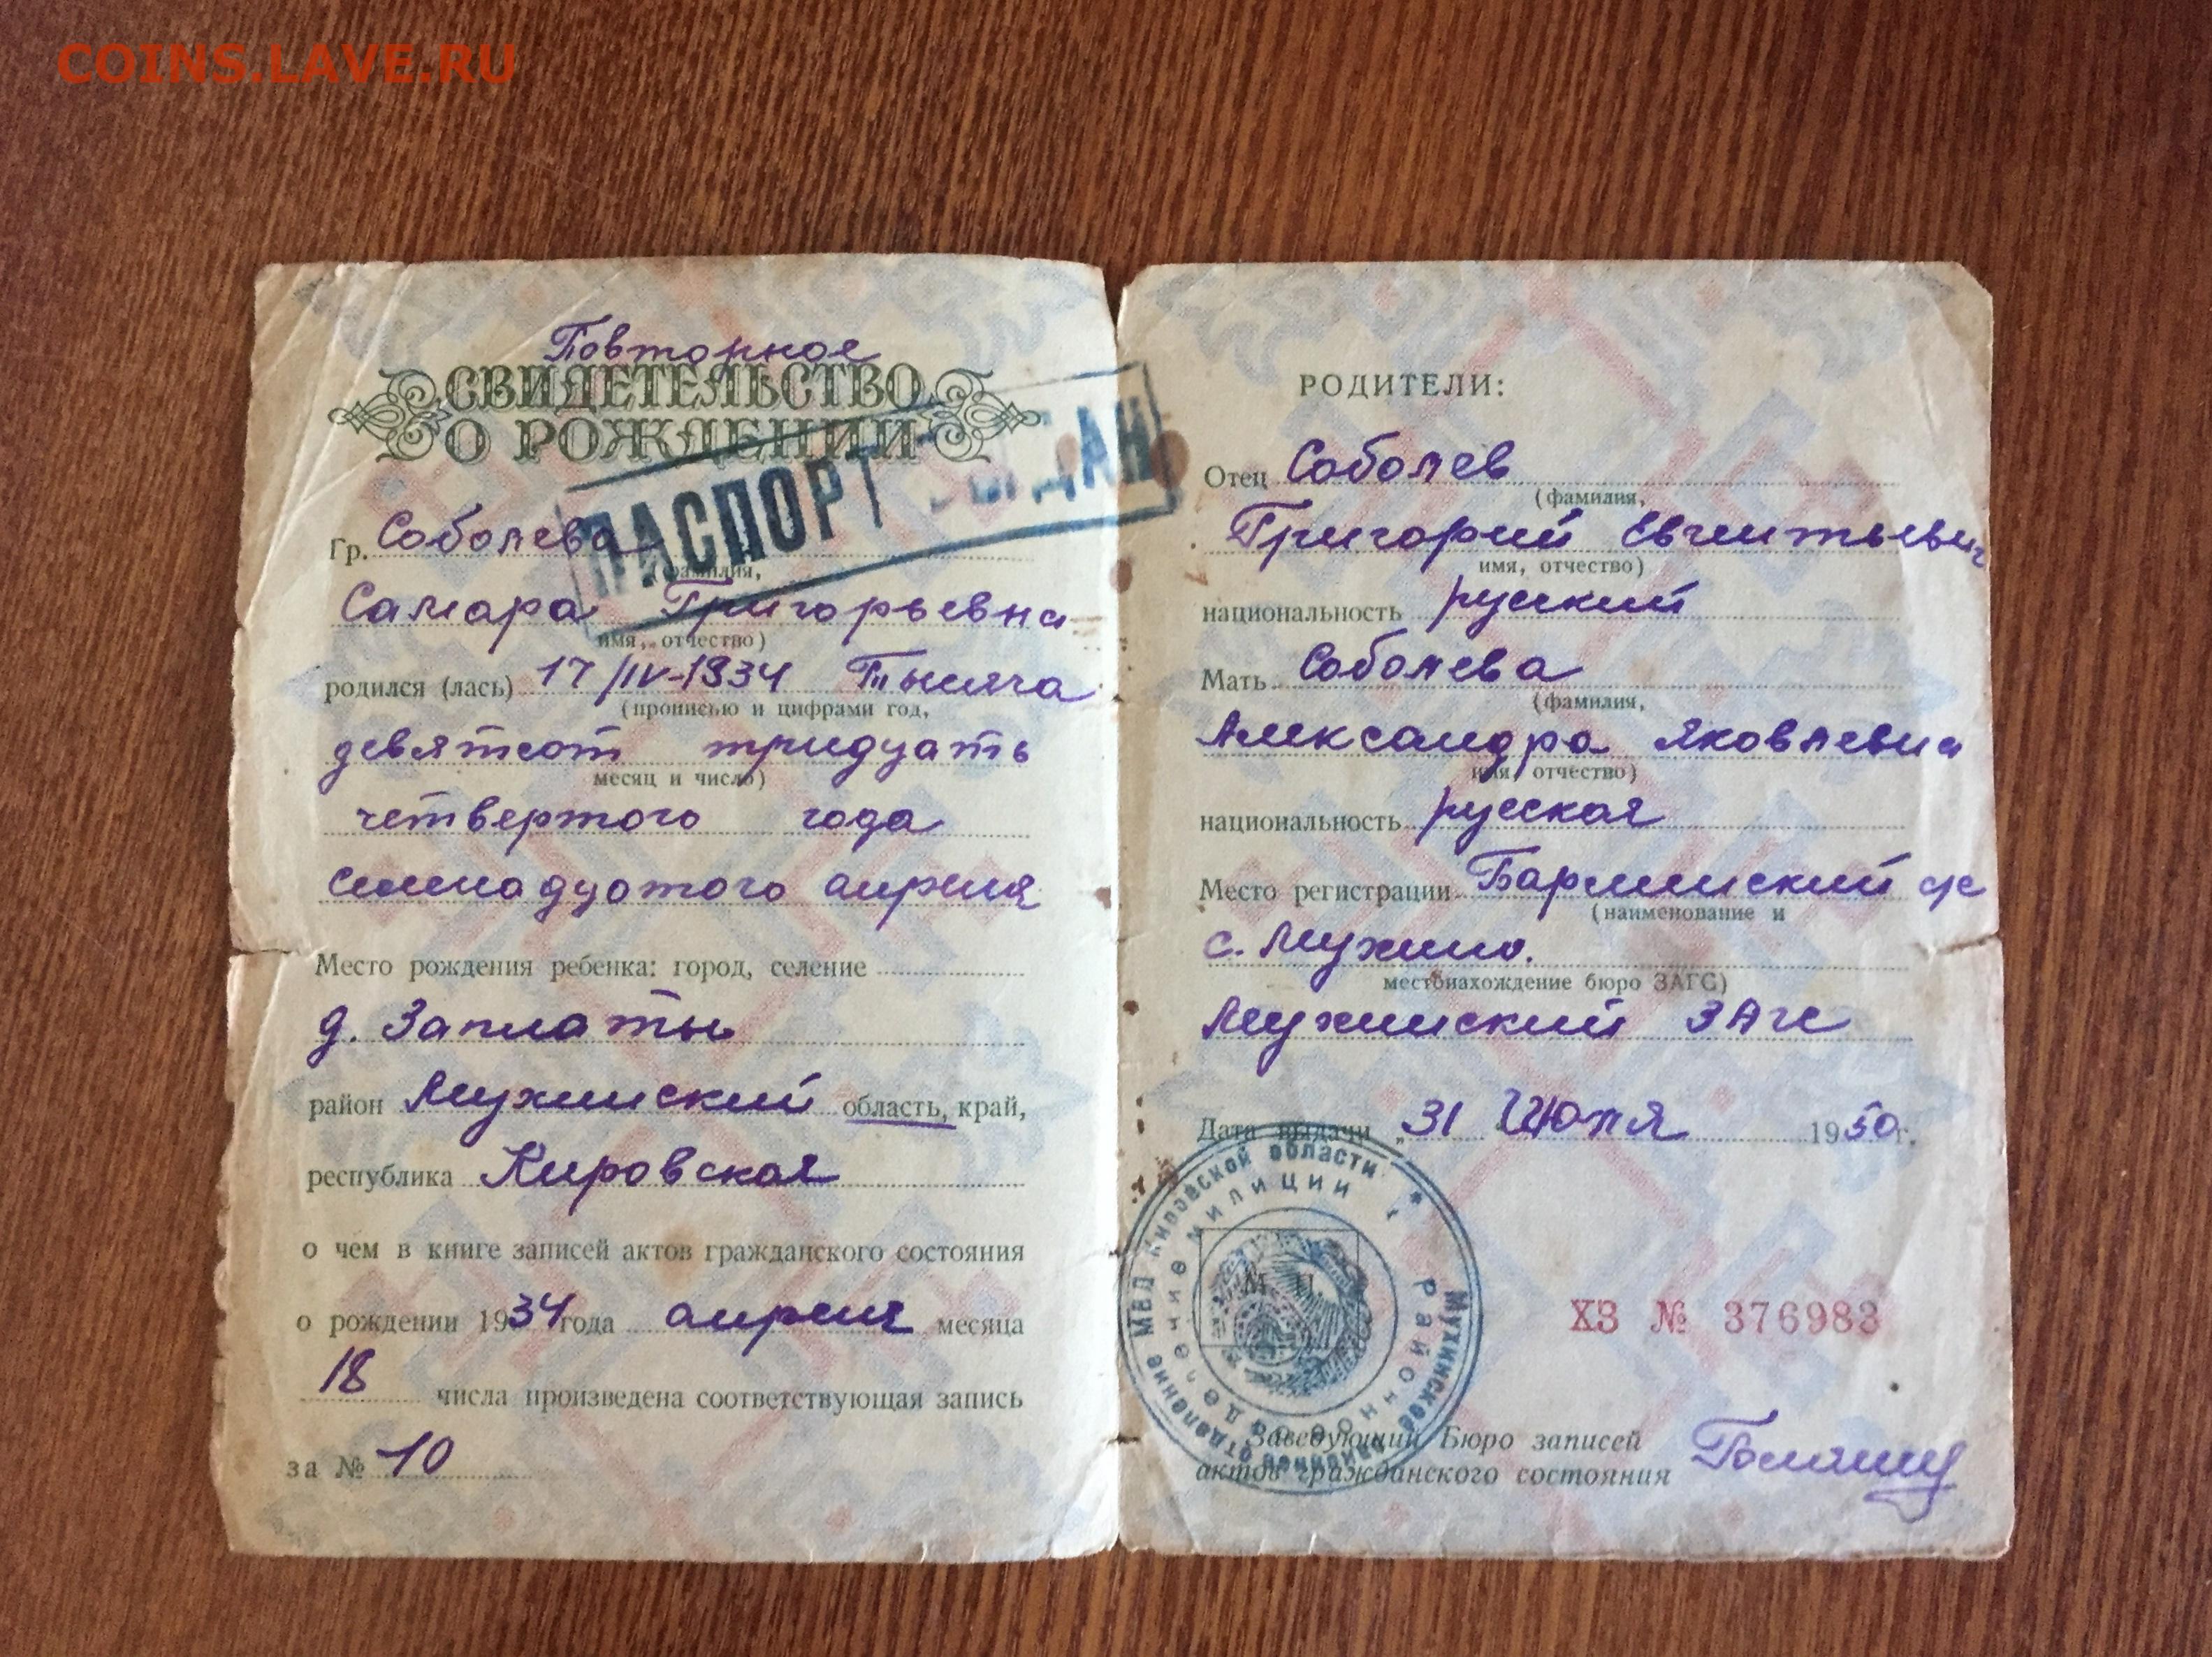 COINS.LAVE.RU
Повторное
СВИДЕТЕЛЬСТВО
О РОЖДЕНИИ
ПАСПОРТ ВЫДАН
Гр. Соболева
(фамилия,
Самара Григорьевна
имя, отчество)
родился (лась) 17/IV-1934 Тысяча
(прописью и цифрами год,
девятсот тридцать
месяц и число)
четвертого года
семнадцатого апреля
Место рождения ребенка: город, селение
д. Заплаты
район Мухинский область, край,
республика Кировская
о чем в книге записей актов гражданского состояния
о рождении 1934 года апреля месяца
18 числа произведена соответствующая запись
за № 10
РОДИТЕЛИ:
Отец Соболев
(фамилия,
Григорий
имя, отчество)
национальность русский
Мать Соболева
(фамилия,
Александра Яковлевна
имя, отчество)
национальность русская
Место регистрации с/с
(наименование и
с. Мухино.
местонахождение бюро ЗАГС)
Мухинский ЗАГС
Дата выдачи „31 Июля 1950 г.
Мухинское районное отделение МВД Кировской области *
Районное отделение милиции
М. П.
ХЗ № 376983
Заведующий Бюро записей
актов гражданского состояния